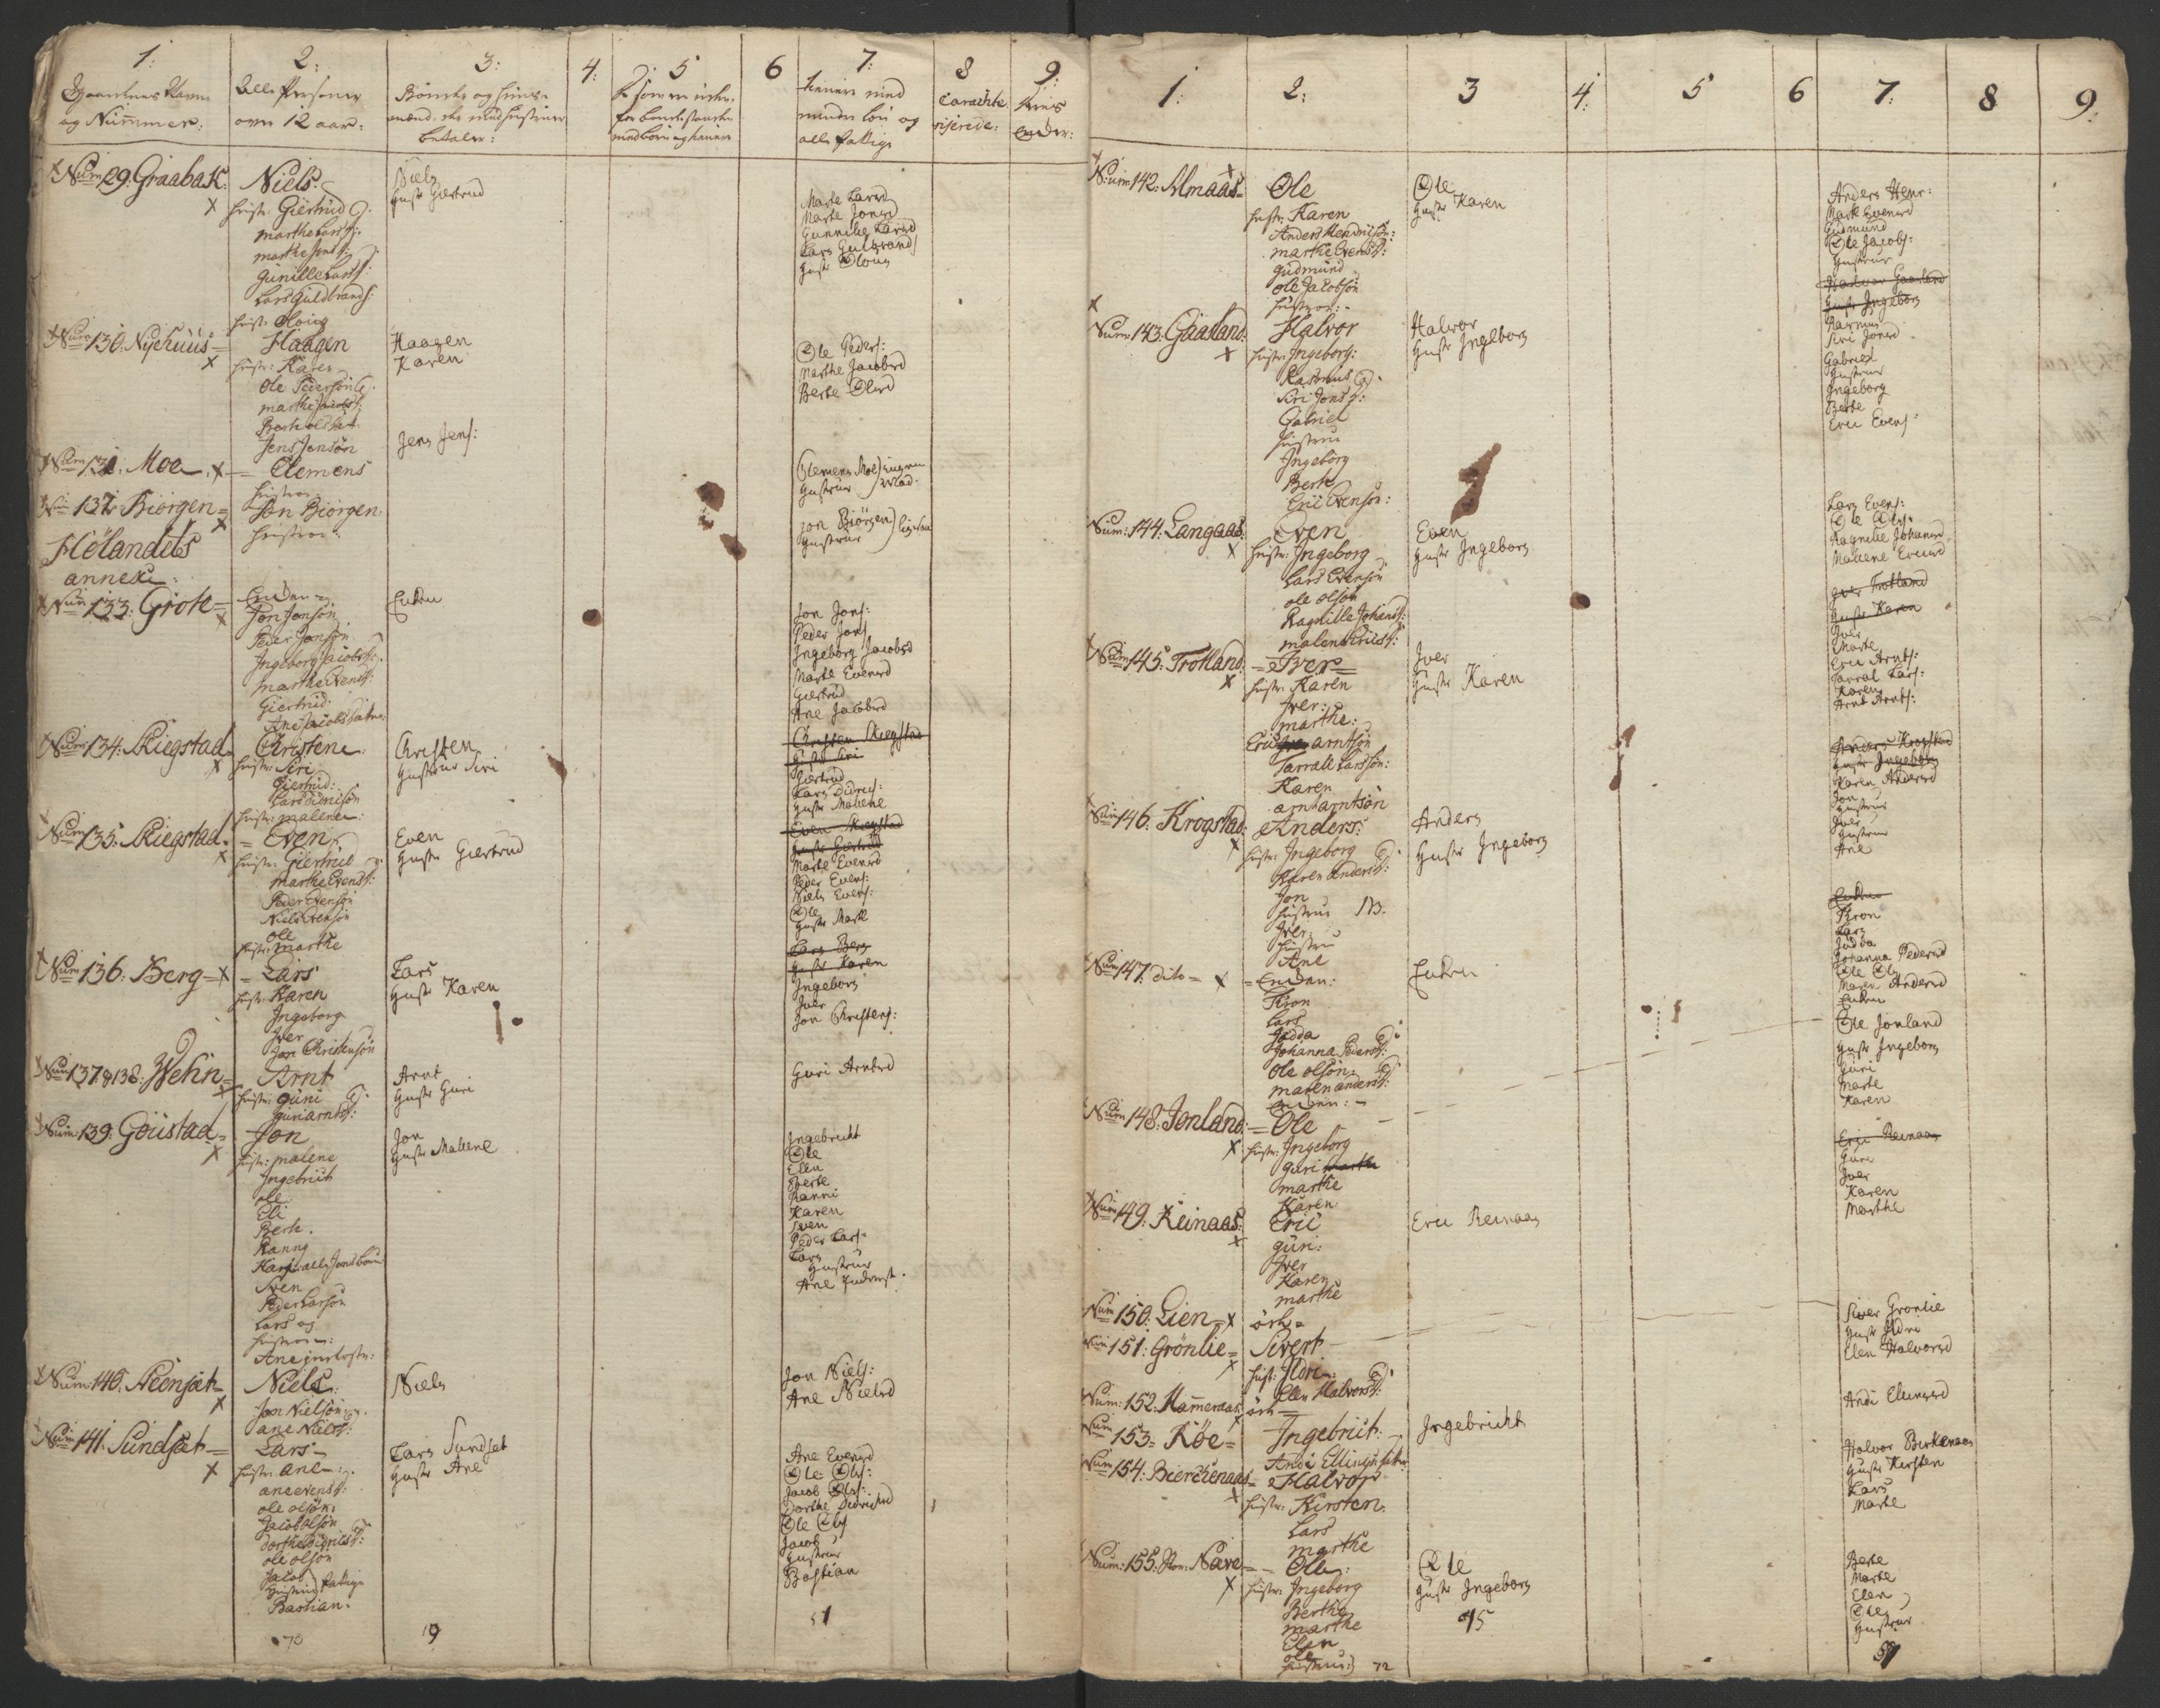 1:
Gaardenes Navne
og Nummer:
2:
Alle Personer
over 12 aar:
3:
betaler:
4:
5
6
7:
alle fattige
8
Caracte
riserede:
9:
Num 29. Graabak:
Niels.
hustr: Giertrud
marthe Larsd:
marthe Jonsd:
Gunille Larsd:
Lars Guldbrands:
hustr: Sloug
Niels
Hustr Giertrud
Marte Larsd
Marte Jonsd
Gunnilde Larsd
Lars Gulbrands
Num 130. Nyehuus
Haagen
hustr: Karen
Ole Pedersøn
marthe Jacobsd:
Jens Jensøn
Haagen
Karen
Jens Jens:
Ole Peders:
Marthe Jacobsd
Berte Olesd
Num 131. Moe
Clemens
hustroe
Clemens Moe
Hustrue
Num 132 Biørgen
Jon Biørgen
hustroe
Jon Biørgen
Hustrue
Hølandets
annexe:
Num 133: Grote
Enken
Jon Jonsøn
Peder Jonsøn
Ingeborg Jacobsd:
marthe Evensd:
Giertrud:
Enken
Jon Jons:
Peder Jons
Ingeborg Jacobsd
Marte Evensd
Giertrud
Ane Jacobsd
Num 134: Skiegstad
Christen
hustr: Siri
Giertrud:
Lars Didricsøn
hustr: malene:
Christen
Hustrue Siri
Christen Skiegstad
Hustr Siri
Giertrud
Lars Didrics:
Hustr Malene
Num 135: Skiegstad
Even
hustr: Giertrud
Marthe Evensd:
Peder Evensøn
Niels Evensøn
ole
hustr: marthe
Even
Hustr Giertrud
Even Skiegstad
Hustr Giertrud
Marte Evensd
Peder Evens:
Niels Evens:
Ole
Hustr Marte
Num 136: Berg
Lars
hustr: Karen
Ingeborg
Iver
Jon Christensøn
Lars
Hustr Karen
Lars Berg
Hustr Karen
Ingeborg
Iver
Jon Christens:
Num 137 & 138: Wehn
Arnt
hustr: guri
guri arntsd:
Arnt
Hustr Guri
Guri Arntsd
Num: 139: Goustad
Jon
hustr: malene
Ingebrict
ole
Eli
Berte.
Ranny
Sven
Peder Larsøn
Lars og
hustroe:
Jon
Hustr Malene
Ingebricht
Ole
Elen
Berte
Ranni
Karen
Sven
Peder Lars:
Lars
Hustrue
Num 140.
Niels
Jon Nielsøn
ane Nielsd:
Niels
Jon Niels:
Ane Nielsd
Num 141. Sundset
Lars
hustr: ane
ane evensd:
ole olsøn
Jacob olsøn
dorthe Didricsd:
ole olsøn
Jacob
Bastian.
Lars Sundset
Hustr Ane
Ane Evensd
Ole Ols:
Jacob Ols:
Dorthe Didrichsd
Ole Ols
Jacob
Hustrue
Bastian
70
19
51
1:
2:
3
4:
5
6
7:
8
9:
Num 142: Almaas
Ole
hustr: Karen
Anders Hendricsøn:
marthe Evensd:
gudmund
ole Jacobsøn
hustroe:
Ole
Hustr Karen
Anders Henr:
Marte Evensd
Gudmund
Ole Jacobs:
Hustrue
Num 143: Gaasland:
Halvor
hustr: Ingeborg:
Rasmus
Siri Jonsd:
Gabriel
hustrue
Ingeborg
Berte
Eric Evensøn:
Halvor
Hustr Ingeborg
Halvor Gaasland
Hustr Ingeborg
Rasmus
Siri Jonsd
Gabriel
Hustrue
Ingeborg
Berte
Eric Evens:
Num: 144: Langaas:
Even
hustr: Ingeborg
Lars Evensøn
ole olsøn
Ragnille Johansd:
malene Ericsd:
Even
Hustr Ingeborg
Lars Evens:
Ole Ols:
Ragnilde Johansd
Malene Ericsd
Num 145: Trotland:
Iver
hustr: Karen
Iver:
marthe:
Eric arntsøn
Tarrald Larsøn:
Karen
arnt arntsøn
Iver
Hustr Karen
Iver Trotland
Hustr Karen
Iver
Marte
Eric Arnts:
Tarral Lars:
Karen
Arnt Arnts:
Num 146: Krogstad:
Anders:
hustr: Ingeborg
Karen andersd:
Jon
hustrue
Iver
hustrue
Ane
Anders
Hustr Ingeborg
Anders Krogstad
Hustr Ingeborg
Karen Andersd
Jon
Hustrue
Iver
Hustrue
Ane
Num 147: dito
Enken:
Tron
Lars
Jødda
Johanna Pedersd:
ole olsøn
maren andersd:
Enken:
Enken
Enken
Tron
Lars
Jødda
Johanna Pedersd
Ole Ols
Maren Andersd
Enken
Num 148: Jonland:
Ole
hustr: Ingeborg
guri marthe
marthe
Karen
Ole Jonland
Hustr Ingeborg
Guri
Marte
Karen
Num 149: Reinaas:
Eric
guri:
Iver
Karen
marthe
Eric Reinaas
Eric Reinaas
Guri
Iver
Karen
Marthe
Num 150: Lien
öde
Num 151: Grønlie
Sivert
hustr: Ildri
Ellen Halvorsd:
Siver Grønlie
Hustr Ildri
Elen Halvorsd
Num: 152: Hameraas:
öde
Num 153: Røe
Ingebrict:
Ingebricht
Num 154: Bierckenaas
Halvor
hustr: Kirsten
Lars
marthe
Halvor Birkenaas
Hustr Kirsten
Lars
Marte
Num: 155: Stor: Nave
Ole:
hustr: Ingeborg
Berthe
marthe
Elen
ole
hustrue
Ole
Hustr Ingeborg
Berte
Marte
Elen
Ole
Hustrue
72
15